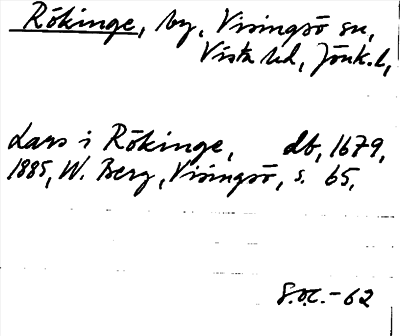 Rökinge, by, Visingsö sn,
Vista hd, Jönk. l,
Lars i Rökinge, db, 1679,
1885, W. Berg, Visingsö, s. 65,
S.O.C. - 62